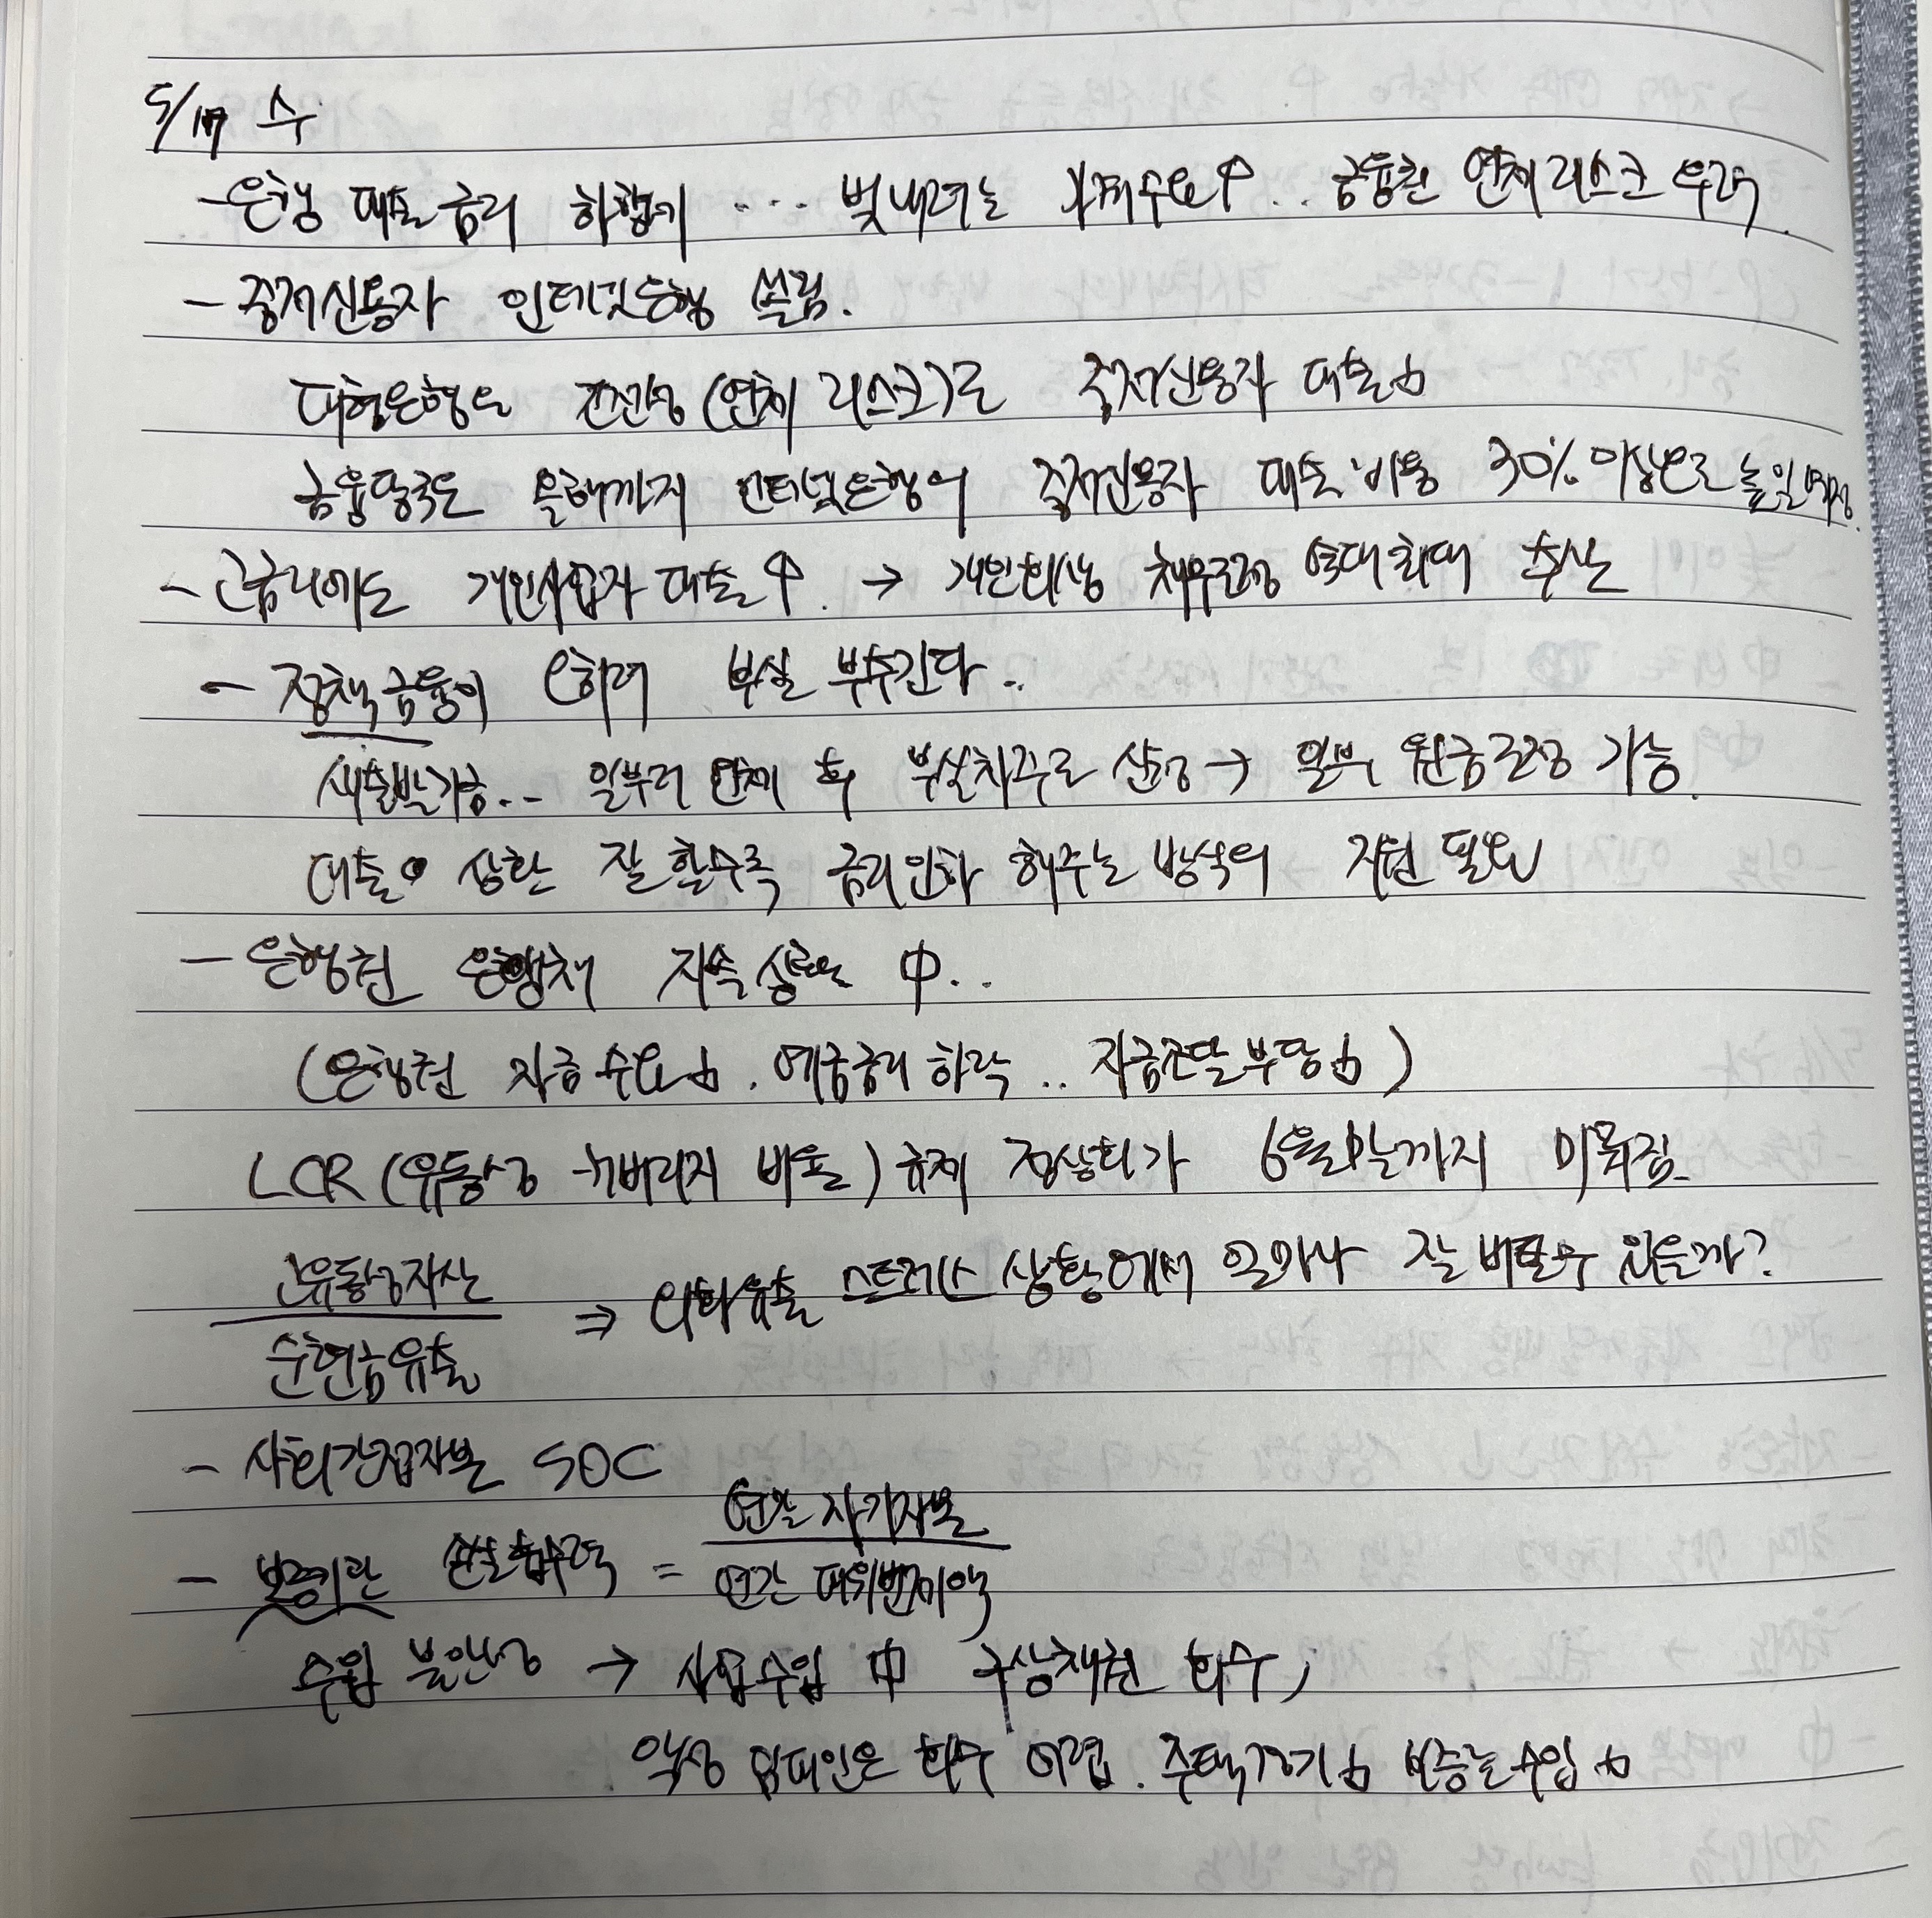 5/17 수
- 은행 대출 금리 하향기 ... 빚내려는 가계수요↑.. 금융권 연체 리스크 우려.
- 중저신용자 인터넷은행 쏠림.
대형은행은 건전성(연체 리스크)로 중저신용자 대출↓
금융당국은 올해까지 인터넷은행의 중저신용자 대출 비중 30% 이상으로 높일 예정.
- 고금리에도 개인사업자 대출↑. → 개인회생 채무조정 역대 최대 수준
- 정책금융이 오히려 부실 부추긴다..
새출발기금.. 일부러 연체 후 부실차주로 산정 → 일부 원금조정 가능.
대출 상환 잘 할수록 금리인하 해주는 방식의 지원 필요
- 은행권 은행채 지속 상환 中..
(은행권 자금 수요↓. 예금금리 하락.. 자금조달부담↓)
LCR (유동성 커버리지 비율) 규제 정상화가 6월말까지 미뤄짐.
고유동성자산
순현금유출 ⇒ 외화유출 스트레스 상황에서 얼마나 잘 버틸수 있을까?
- 사회간접자본 SOC
- 보증기관 손실흡수력 = 연간 대위변제액
연말 자기자본
수입 불안정 → 사업수입 中 구상채권 회수,
악성 임대인은 회수 어렵. 주택경기↓ 보증료수입↓